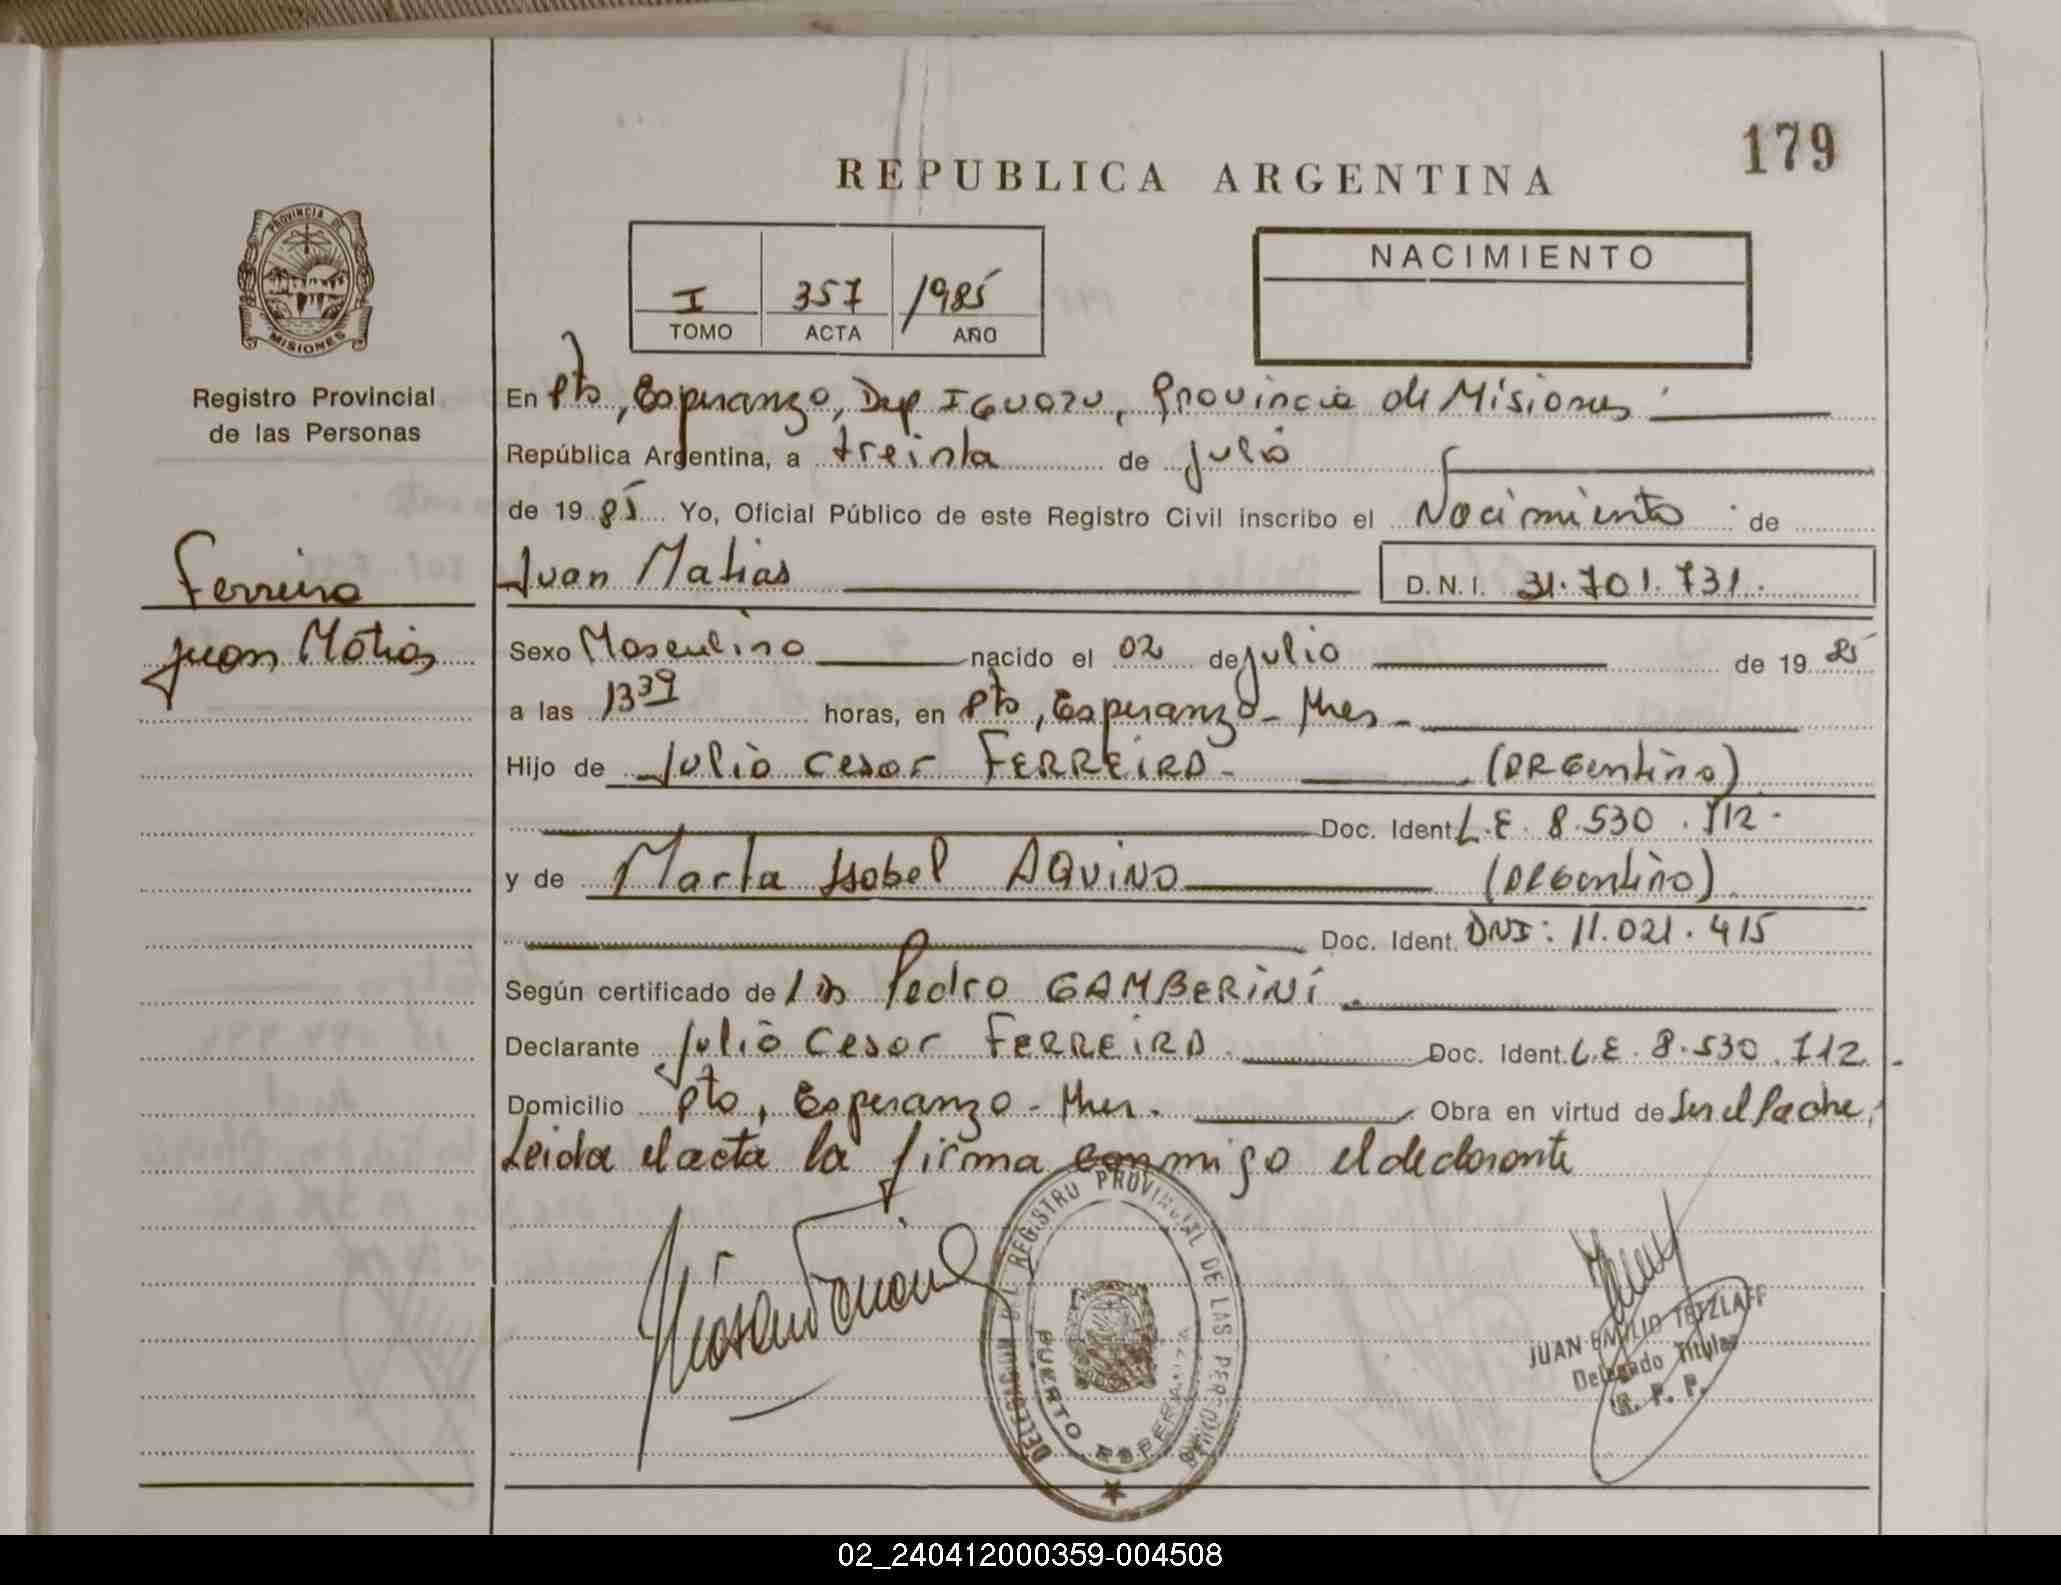 179
REPUBLICA ARGENTINA
PROVINCIA DE
MISIONES
Registro Provincial
de las Personas
I 357 1985
TOMO ACTA AÑO
NACIMIENTO
En Pto, Esperanza, Dep IGUAZU, Provincia de Misiones
República Argentina, a treinta de julio
de 19 85 Yo, Oficial Público de este Registro Civil inscribo el Nacimiento de
Ferreira
Juan Matias D.N.I. 31.701.731.
Juan Matias
Sexo Masculino nacido el 02 de julio de 19 85
a las 13 39 horas, en Pto, Esperanza - Mnes -
Hijo de Julio Cesar FERREIRA - (ARGentino)
Doc. Ident. L.E. 8.530.712 -
y de Marta Isabel AQUINO (ARGentina)
Doc. Ident. DNI: 11.021.415
Según certificado de Pedro GAMBERINI
Declarante Julio Cesar FERREIRA Doc. Ident. L.E. 8.530.712 -
Domicilio Pto, Esperanza - Mnes. Obra en virtud de Ser el Padre,
Leida el acta la firma conmigo el declarante
DELEGACION DEL REGISTRO PROVINCIAL DE LAS PERSONAS
PUERTO ESPERANZA
JUAN EMILIO TETZLAFF
Delegado Titular
R. P. P.
02_240412000359-004508